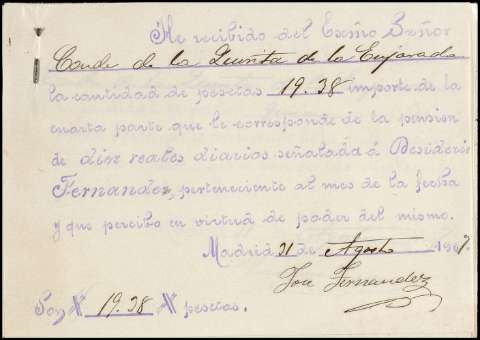 He recibido del Exmo Señor
Conde de la Quinta de la Enjarada
la cantidad de pesetas 19.38 importe de la
cuarta parte que le corresponde de la pension
de diez reales diarios señalada á Desiderio
Fernandez, perteneciente al mes de la fecha
y que percibo en virtud de poder del mismo.
Madrid 31 de Agosto 1907.
José Fernandez
Son # 19.38 # pesetas.